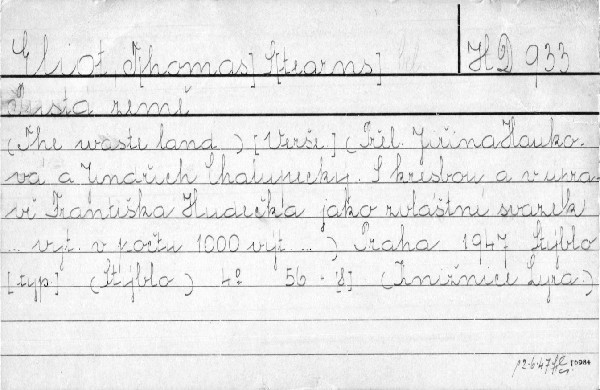 Eliot, Thomas] Stearns] HD 933
Pustá země
(The waste land.) [Verše.] (Přel. Jiřina Hauko-
vá a Jindřich Chalupecký. S kresbou a v úpra-
vě Františka Hudečka jako zvláštní svazek
... vyt. v počtu 1000 výt ... ) Praha 1947 Stýblo
[typ.] (Stýblo) 4° 56 - [8] (Knižnice Lyra.)
15984